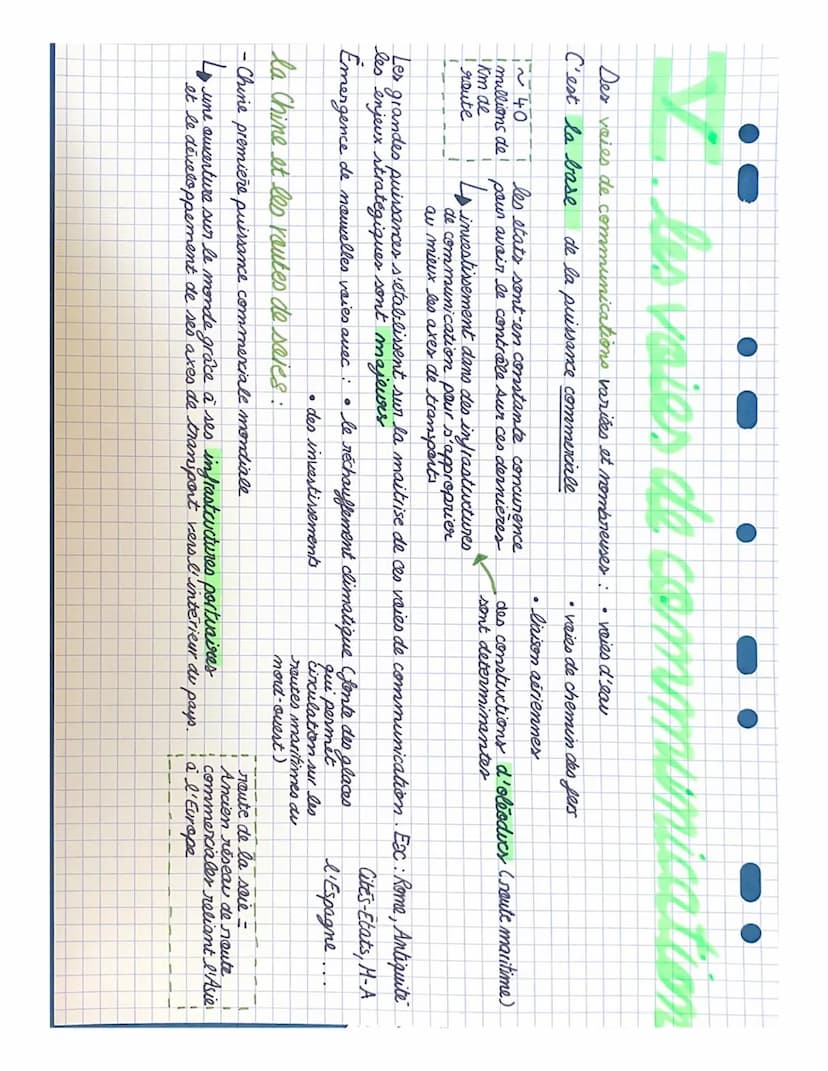 V. les voies de communication
Des voies de communications variées et nombreuses : • voies d'eau
• voies de chemin des fers
• liaison aériennes
C'est la base de la puissance commerciale
~ 40
millions de
Km de
route
les états sont en constante concurence
pour avoir le contrôle sur ces dernières
↳ investissement dans des infrastuctures
de communication pour s'approprier
au mieux les axes de transports
des constuctions d'oléoducs (route maritime)
sont determinantes
Les grandes puissances s'établissent sur la maitrise de ces voies de communication. Ex : Rome, Antiquité
Cités-Etats, M-A
l'Espagne ...
les enjeux stratégiques sont majeurs
Émergence de nouvelles voies avec : • le réchauffement climatique (fonte des glaces
qui permet
circulation sur les
routes maritimes du
nord-ouest)
• des investissements
la Chine et les routes de soies :
- Chine première puissance commerciale mondiale
↳ une ouverture sur le monde grâce à ses infrastructures portuaires
et le développement de ses axes de transport vers l'intérieur du pays.
route de la soie =
Ancien réseau de route
commerciales reliant l'Asie
à l'Europe